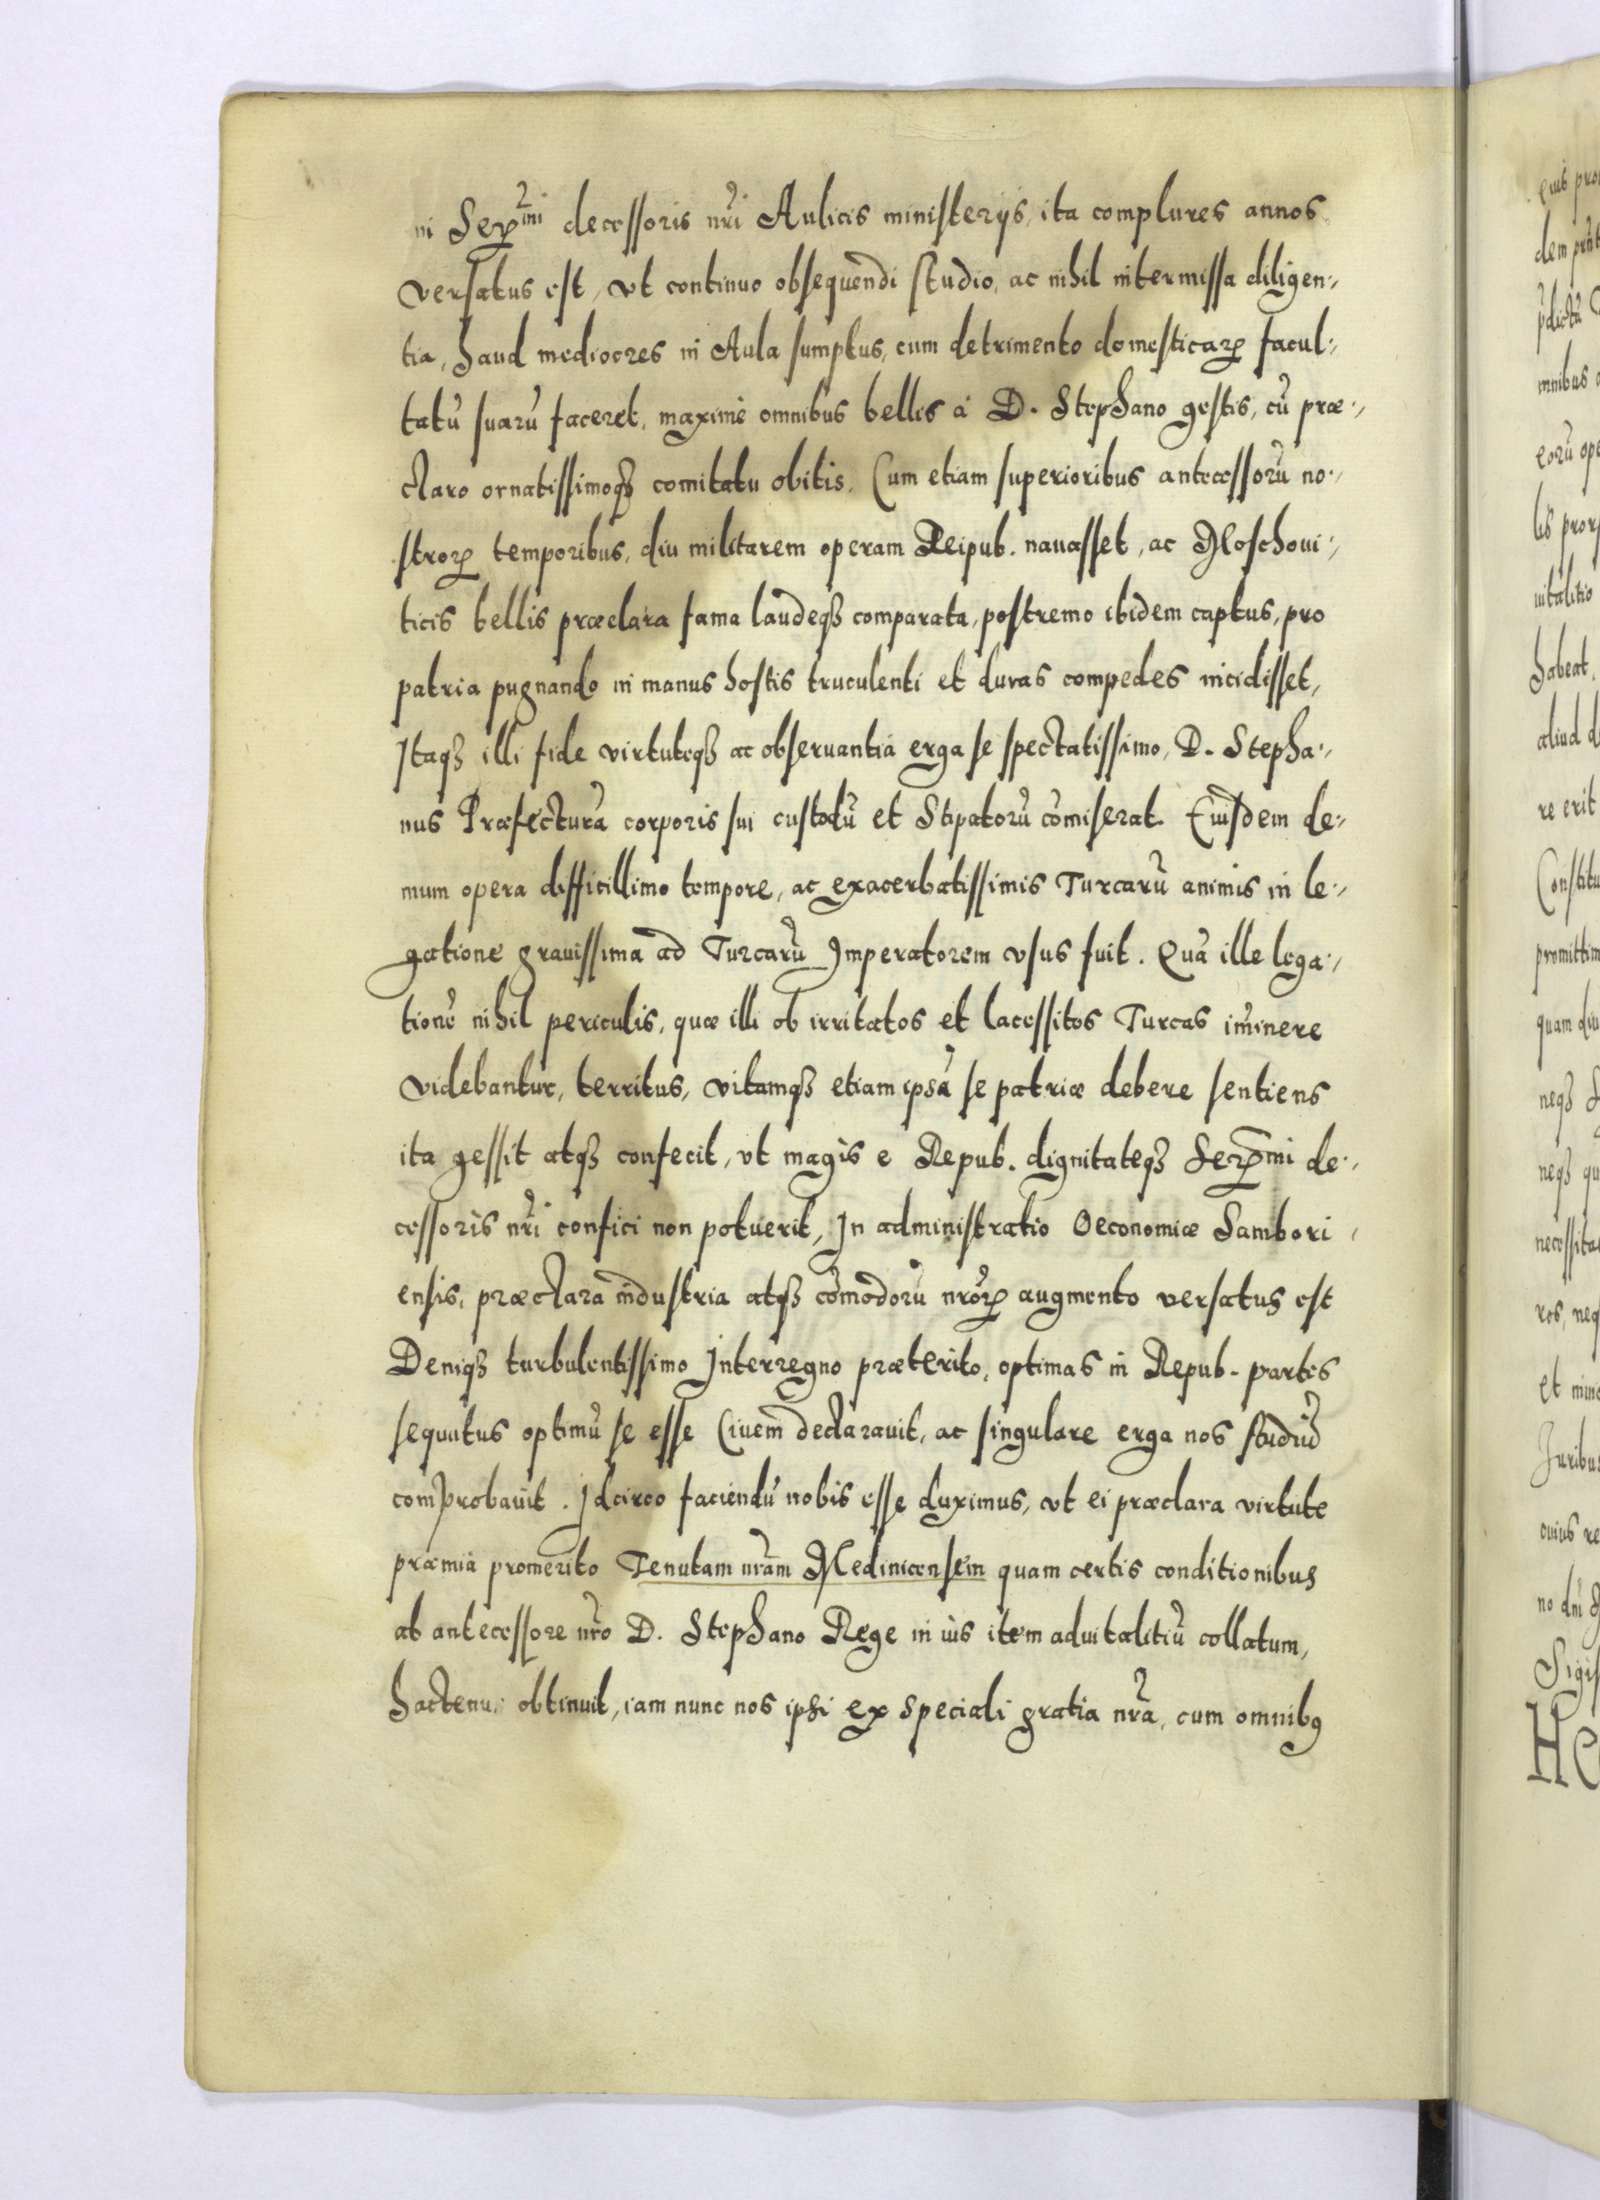 in Ser^mi decessoris nr̃i Aulicis ministerijs, ita complures annos
versatus est, vt continuo obsequendi studio, ac nihil intermissa diligen:,
tia, haud mediocres in Aula sumptus, cum detrimento domesticarꝝ facul:,
tatũ suarũ faceret, maxime omnibus bellis à D. Stephano gestis, cũ præ:,
claro ornatissimoqꝫ comitatu obitis. Cum etiam superioribus antecessorũ no:,
strorꝝ temporibus, diu militarem operam Reipub. nauasset, ac Moschoui:,
ticis bellis præclara fama laudeqꝫ comparata, postremo ibidem captus, pro
patria pugnando in manus hostis truculenti et duras compedes incidisset,
Itaqꝫ illi fide virtuteqꝫ ac obseruantia erga se spectatissimo, D. Stepha:,
nus Præfecturã corporis sui custodũ et Stipatorũ cõmiserat. Eiusdem de:,
mum opera difficillimo tempore, ac exacerbatissimis Turcarũ animis in le:,
gatione grauissima ad Turcarũ Imperatorem vsus fuit. Quã ille lega:,
tionẽ nihil periculis, quæ illi ob irritatos et lacessitos Turcas im̃inere
videbantur, territus, vitamqꝫ etiam ipsã se patriæ debere sentiens
ita gessit atqꝫ confecit, vt magis e Repub. dignitateqꝫ Serꝝmi de:,
cessoris nr̃i confici non potuerit, In administratio Oeconomiæ Sambori,
ensis, præclara industria atqꝫ cõmodorũ nr̃orꝝ augmento versatus est
Deniqꝫ turbulentissimo Interregno præterito, optimas in Repub. partes
sequutus optimũ se esse Ciuem declarauit, ac singulare erga nos studiũ
comprobauit. Idcirco faciendũ nobis esse duximus, vt ei præclara virtute
præmia promerito Tenutam nr̃am Medinicensem quam certis conditionibus
ab antecessore nr̃o D. Stephano Rege in ius item aduitalitiũ collatum,
hactenus obtinuit, iam nunc nos ipsi ex speciali gratia nr̃a, cum omnibꝰ